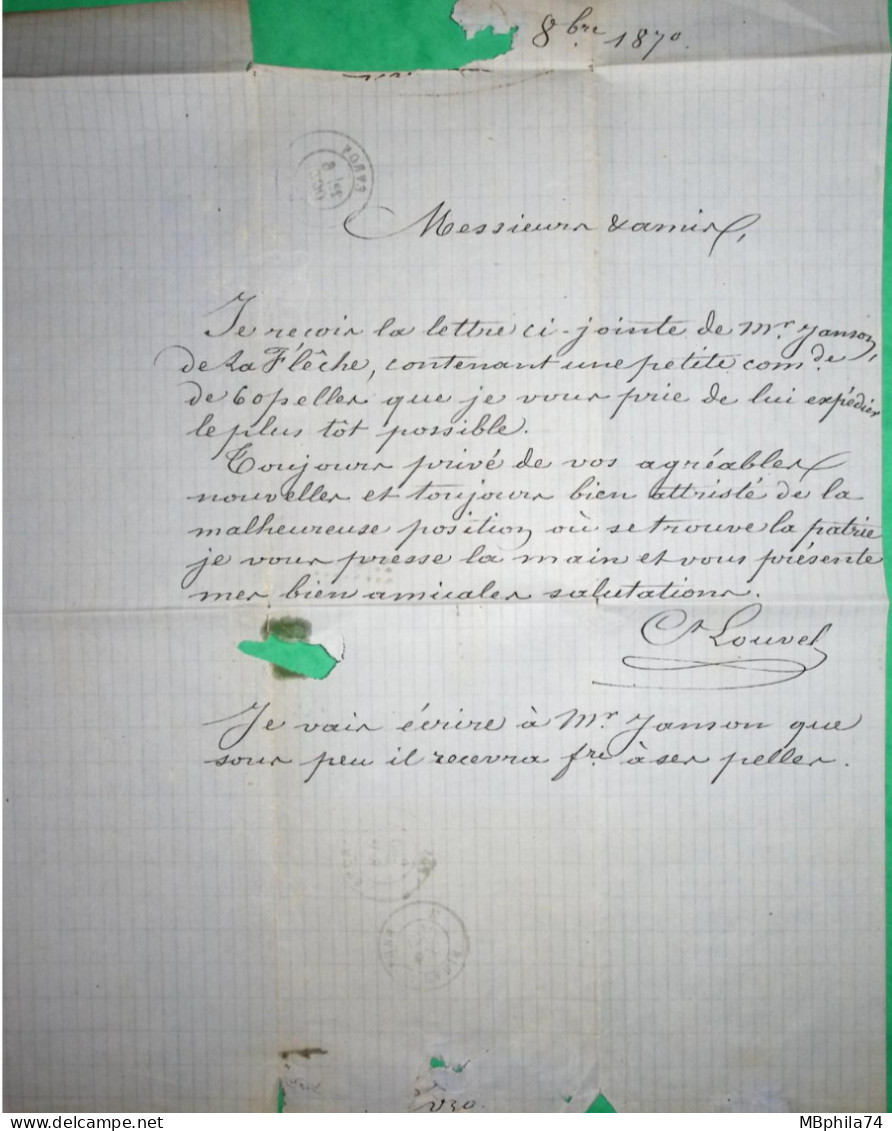 8bre 1870.
Messieurs & amis,
Je reçois la lettre ci-jointe de Mr. Janson,
de La Flêche, contenant une petite comde
de 60 pelles que je vous prie de lui expédier
le plus tôt possible.
Toujours privé de vos agréables
nouvelles et toujours bien attristé de la
malheureuse position où se trouve la patrie
je vous presse la main et vous présente
mes bien amicales salutations.
Louvel
Je vais écrire à Mr Janson que
sous peu il recevra fre à ses pelles.
MBphila74